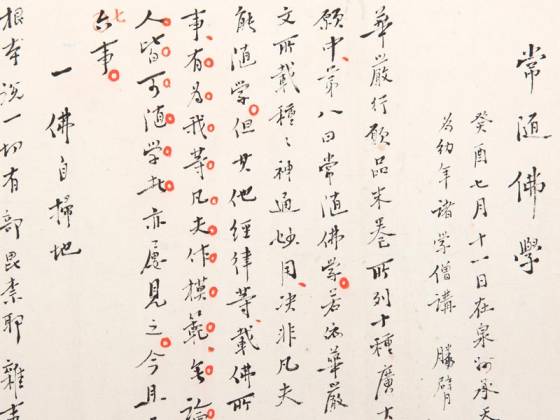 常随佛學
癸酉七月十一日在泉州承天
為幼年諸學僧講 勝臂
華嚴行願品末卷所列十種廣大
願中第八曰常随佛學若依華嚴
文所載種〻神通妙用决非凡夫
能随學但其他經律等載佛所
事有為我等凡夫作模範無論
人皆可随學者亦屢見之今且
六七事
一 佛自掃地
根本說一切有部毘柰耶雜事